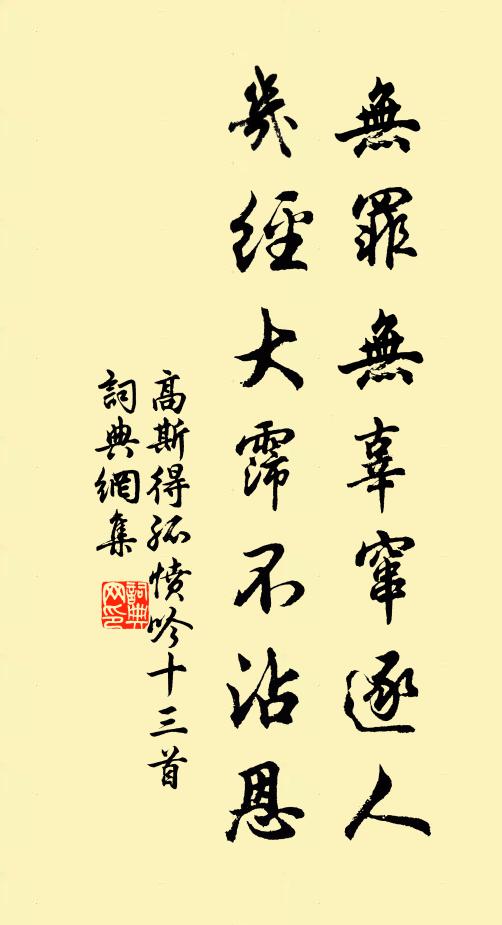 無罪無辜竄逐人
幾經大霈不沾恩
高斯得孤憤吟十三首
詞典網集
詞典網印